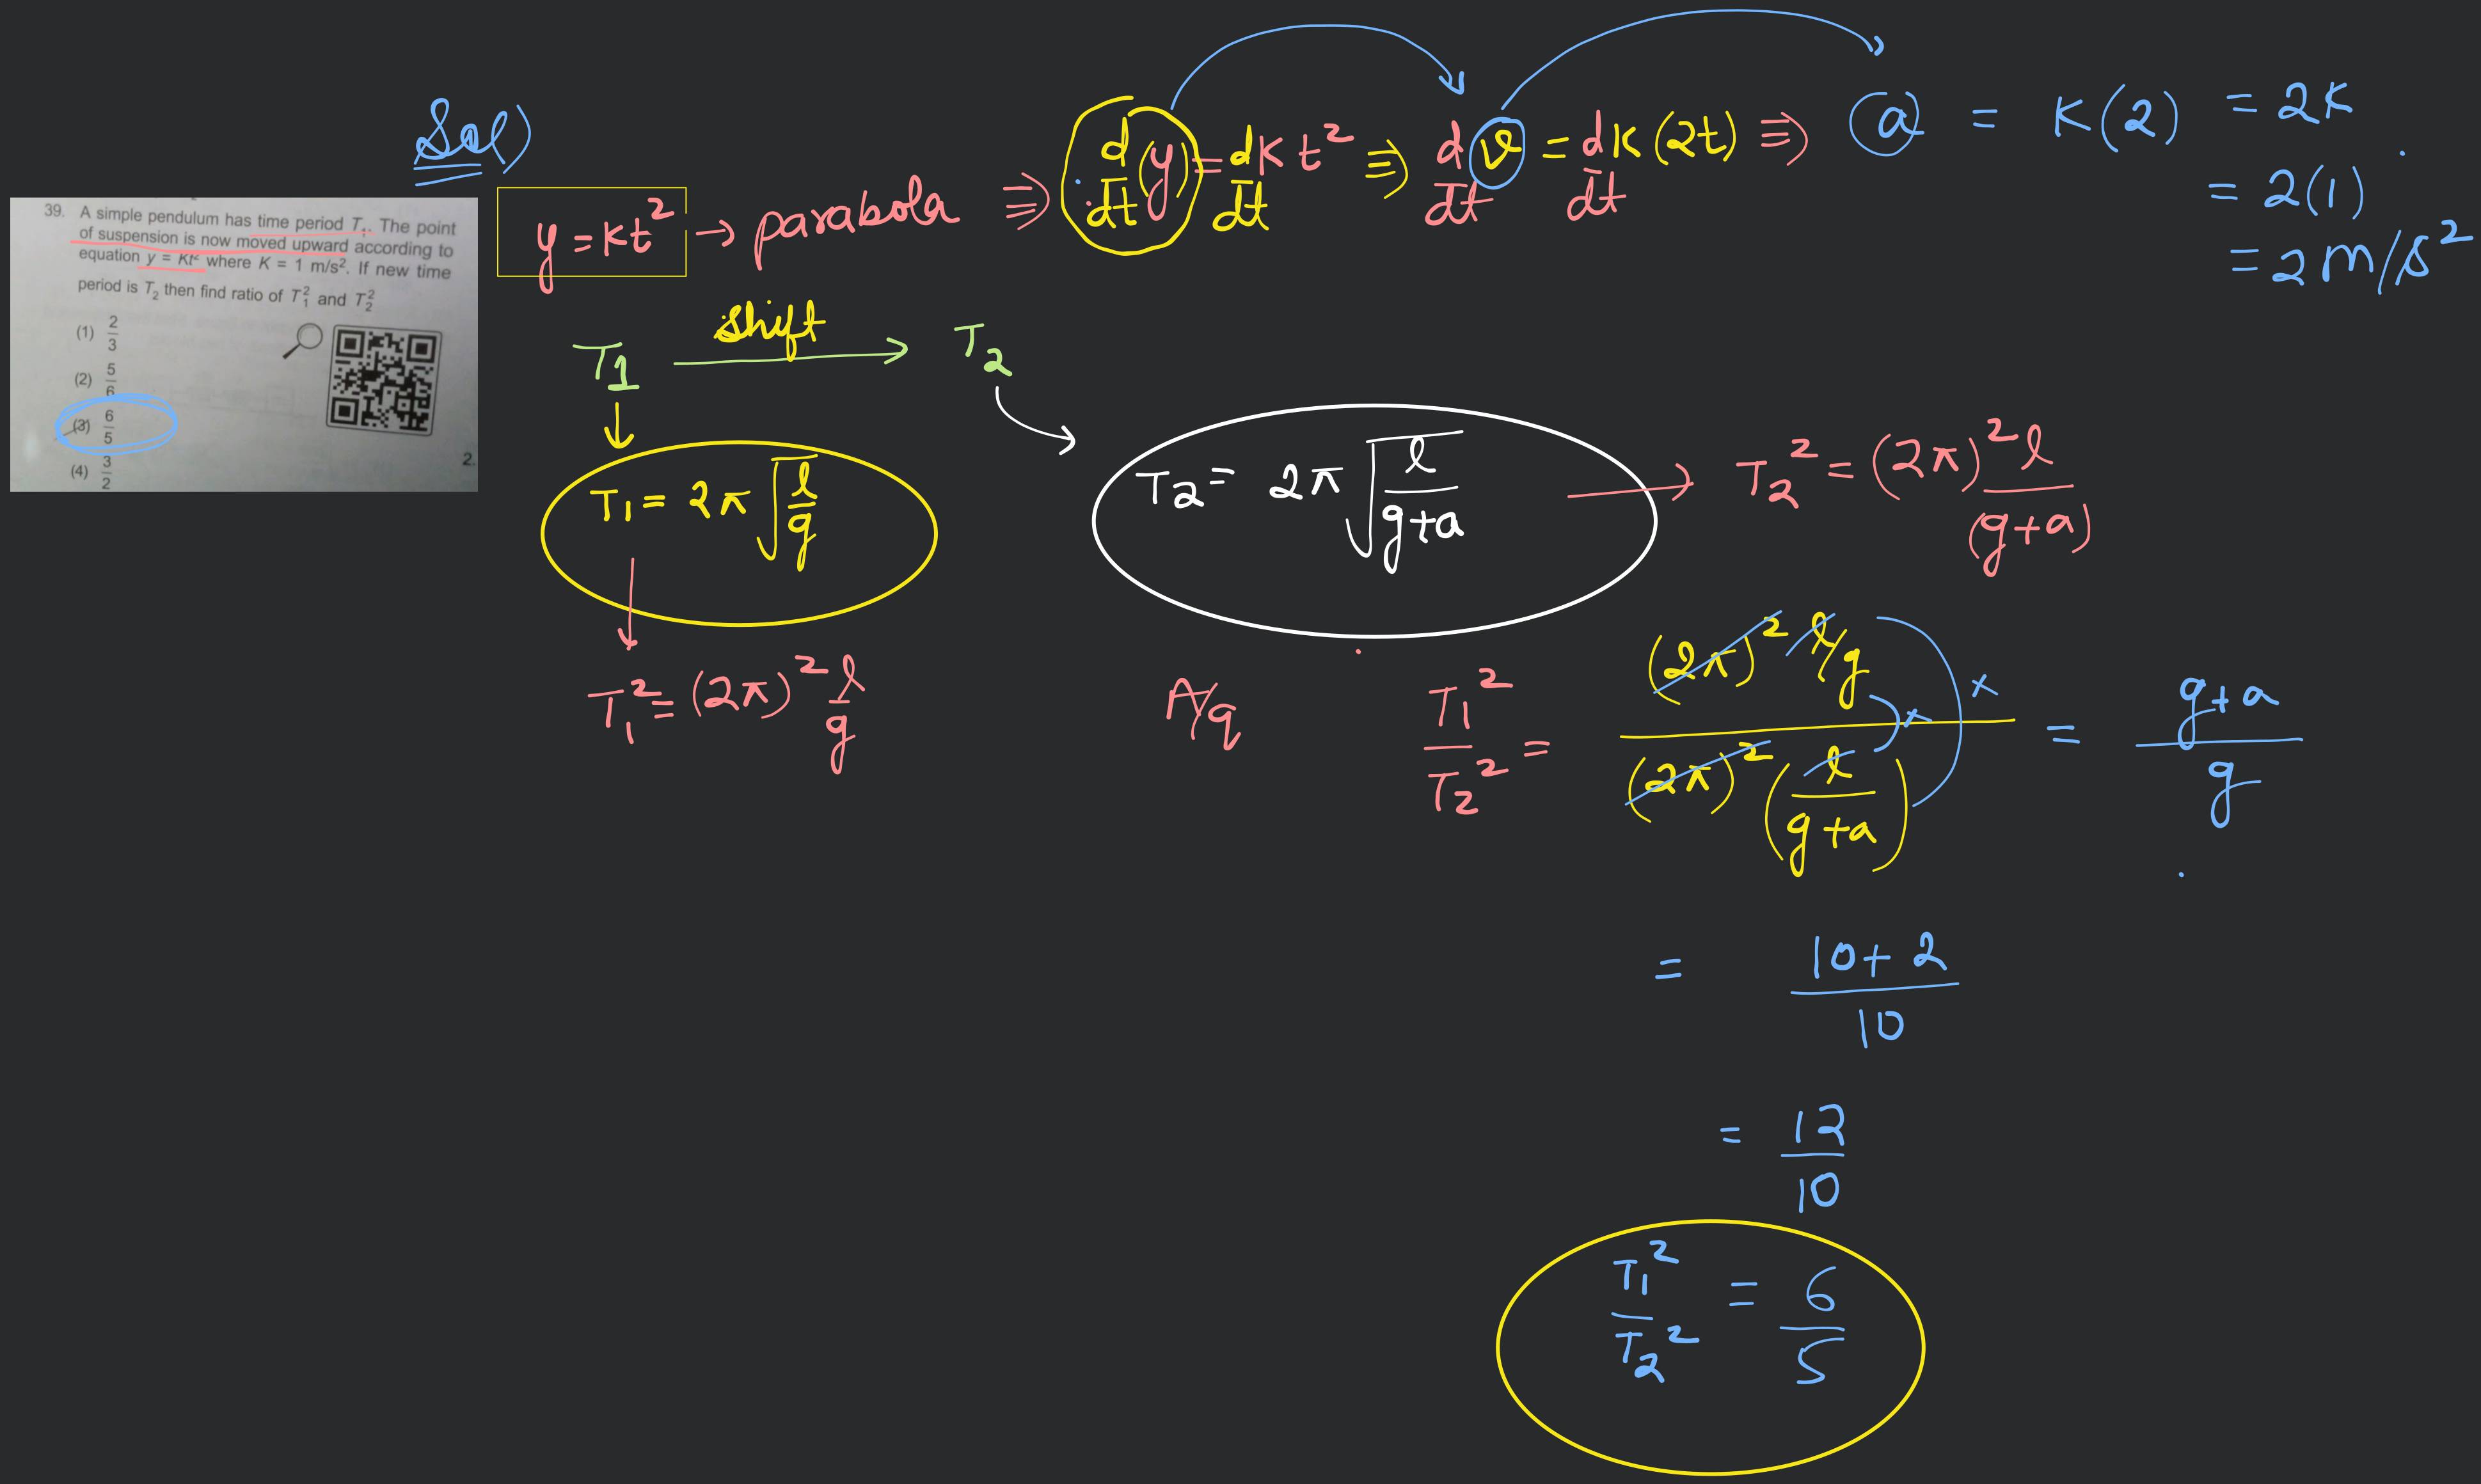 Sol)
39. A simple pendulum has time period T₁. The point
of suspension is now moved upward according to
equation y = Kt² where K = 1 m/s². If new time
period is T₂ then find ratio of T₁² and T₂²
(1) 2/3
(2) 5/6
(3) 6/5
(4) 3/2
2.
y = kt² → parabola ⇛ d/dt (y) = d/dt Kt² ⇛ d/dt v = d/dt k(2t) ⇛ a = K(2) = 2K
= 2(1)
= 2 m/s²
T₁ shift → T₂
T₁ = 2π √(l/g)
T₂ = 2π √(l/(g+a)) → T₂² = (2π)² l/(g+a)
T₁² = (2π)² l/g
A/q T₁²/T₂² = (2π)² l/g / (2π)² (l/(g+a)) = (g+a)/g
= (10+2)/10
= 12/10
T₁²/T₂² = 6/5